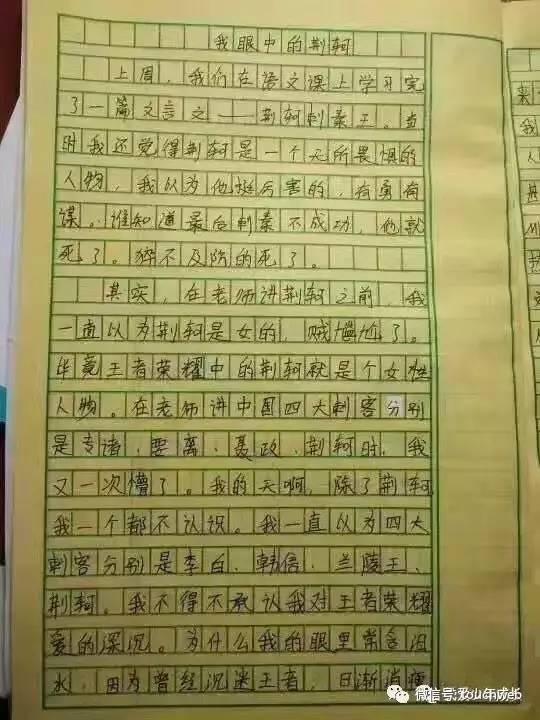 我眼中的荆轲
上周，我们在语文课上学习完
了一篇文言文——荆轲刺秦王。当
时我还觉得荆轲是一个无所畏惧的
人物，我认为他挺厉害的，有勇有
谋。谁知道最后刺秦不成功，他就
死了。猝不及防的死了。
其实，在老师讲荆轲之前，我
一直以为荆轲是女的，贼尴尬了。
毕竟王者荣耀中的荆轲就是个女性
人物。在老师讲中国四大刺客分别
是专诸、要离、聂政、荆轲时，我
又一次懵了。我的天啊，除了荆轲，
我一个都不认识。我一直以为四大
刺客分别是李白、韩信、兰陵王、
荆轲。我不得不承认我对王者荣耀
爱的深沉。为什么我的眼里常含泪
水，因为曾经沉迷王者，日渐消瘦
微信号